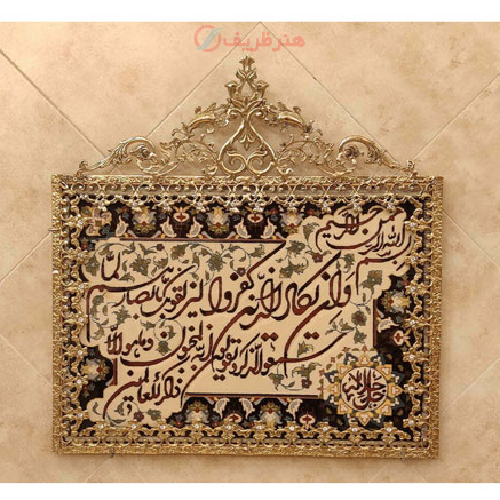 هنر ظریف
بسم الله الرحمن الرحیم
وان یکاد الذین کفروا لیزلقونک بابصارهم لما
سمعوا الذکر و یقولون انه لمجنون و ما هو الا
ذکر للعالمین
جل جلاله